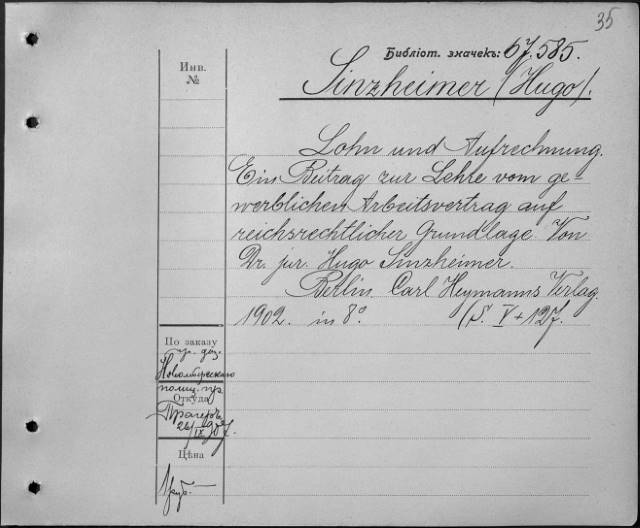 35
Библіот. значекъ: 67.585.
Инв.
№
Sinzheimer (Hugo).
Lohn und Aufrechnung.
Ein Beitrag zur Lehre vom ge-
werblichen Arbeitsvertrag auf
reichsrechtlicher Grundlage. Von
Dr. jur. Hugo Sinzheimer.
Berlin. Carl Heymanns Verlag.
1902. in 8º. (S. V + 127.
По заказу
Откуда
Прагеръ
26/IX 907.
Цѣна
1 руб.—